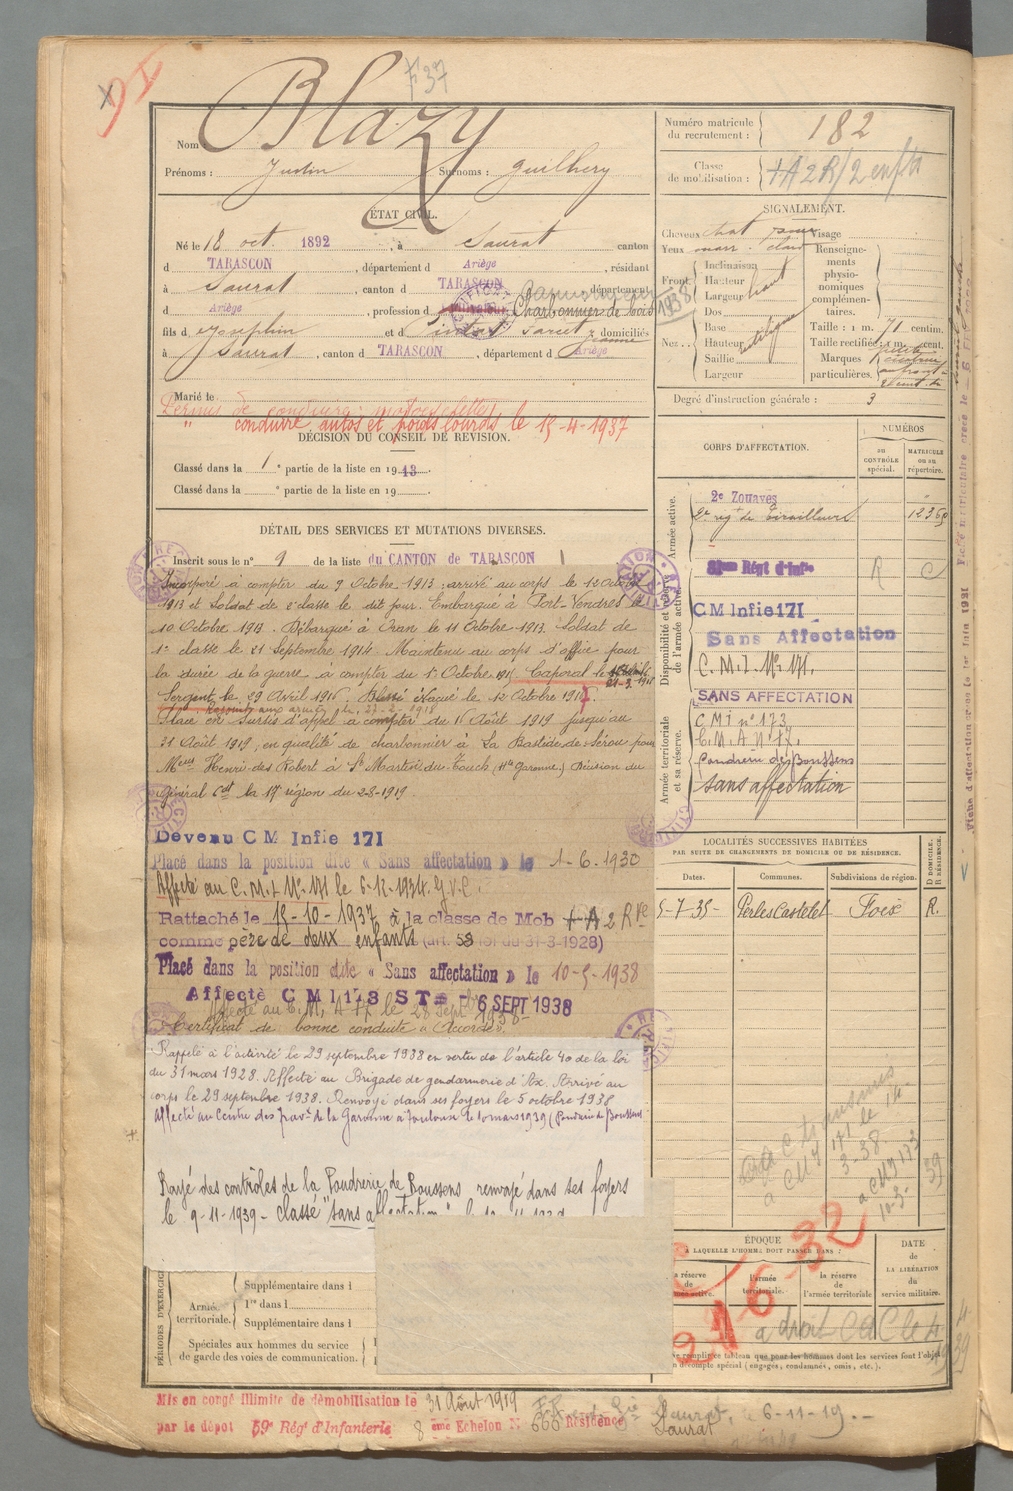 F 37
Nom : Blazy
Prénoms : Justin Surnoms : Guilhery
Numéro matricule du recrutement : 182
Classe de mobilisation : + A 2 R/2 enfts
ÉTAT CIVIL.
Né le 18 oct. 1892, à Saurat canton
d TARASCON, département d Ariège, résidant
à Saurat, canton d TARASCON, département
d Ariège, profession d Charbonnier de bois
fils d Josephin et d Saret Jeanne domiciliés
à Saurat, canton d TARASCON, département d Ariège
Marié le
Permis de conduire
" conduire autos et poids lourds le 15-4-1937
DÉCISION DU CONSEIL DE RÉVISION.
Classé dans la 1e partie de la liste en 1913.
Classé dans la e partie de la liste en 19
DÉTAIL DES SERVICES ET MUTATIONS DIVERSES.
Inscrit sous le n° 9 de la liste du CANTON de TARASCON
Incorporé à compter du 9 Octobre 1913 : arrivé au corps le 12 Octobre
1913 et Soldat de 2e classe le dit jour. Embarqué à Port-Vendres le
10 Octobre 1913. Débarqué à Oran le 11 Octobre 1913. Soldat de
1e classe le 21 Septembre 1914. Maintenu au corps d'office pour
la durée de la guerre à compter du 1er Octobre 1915. Caporal le 21-3-1915
Sergent le 29 Avril 1916. Évacué le 12 Octobre 1917.
aux armées le 27-2-1918
Placé en sursis d'appel à compter du 11 Août 1919 jusqu'au
31 Août 1919, en qualité de charbonnier à La Bastide-de-Sérou pour
Mrs Henri des Robert à St Martin-du-Touch (Hte Garonne.) Décision du
Général Cdt la 17e région du 2-8-1919.
Devenu C M Infie 171
Placé dans la position dite « Sans affectation » le 1-6-1930
Affecté au C.M.I. N° 171 le 6-12-1934. G.V.C.
Rattaché le 15-10-1937 à la classe de Mob + A 2 Rve
comme père de deux enfants (art. 58 loi du 31-3-1928)
Placé dans la position dite « Sans affectation » le 10-5-1938
Affecté C M I 173 - 6 SEPT 1938
Affecté au C.M. A 17 le 28 Septbre 1938-
Certificat de bonne conduite « Accordé ».
Rappelé à l'activité le 29 septembre 1938 en vertu de l'article 40 de la loi
du 31 mars 1928. Affecté au Brigade de gendarmerie d'Ax. Arrivé au
corps le 29 septembre 1938. Renvoyé dans ses foyers le 5 octobre 1938
Affecté au Centre des Trav. de la Garonne à Toulouse le 10 mars 1939 (Poudrerie de Boussens)
Rayé des contrôles de la Poudrerie de Boussens renvoyé dans ses foyers
le 9-11-1939 - classé "sans affectation"
PÉRIODES D'EXERCICE
Armée territoriale.
Supplémentaire dans l
1re dans l
Supplémentaire dans l
Spéciales aux hommes du service
de garde des voies de communication.
Mis en congé illimité de démobilisation le 31 Août 1919
par le dépôt 59e Régt d'Infanterie 8 ème Echelon N° 666 Résidence Saurat
Saurat, le 6-11-19.
SIGNALEMENT.
Cheveux chat
Yeux marr. clair
Front
Inclinaison
Hauteur
Largeur haut
Nez
Dos
Base
Hauteur
Saillie
Largeur
rectiligne
Visage
Renseignements physionomiques complémentaires.
Taille : 1 m. 71 centim.
Taille rectifiée : 1 m. cent.
Marques particulières.
1938
Degré d'instruction générale : 3
CORPS D'AFFECTATION.
NUMÉROS
AU CONTRÔLE spécial.
MATRICULE ou au répertoire.
Armée active.
2e Zouaves
2e régt de Tirailleurs
Disponibilité et réserve de l'armée active.
Régt d'Infie R C
C M Infie 171
Sans Affectation
C.M.I. N° 171.
Armée territoriale et sa réserve.
SANS AFFECTATION
C M I n° 173
C.M.A N° 17.
Poudrerie de Boussens
sans affectation
LOCALITÉS SUCCESSIVES HABITÉES
PAR SUITE DE CHANGEMENTS DE DOMICILE OU DE RÉSIDENCE.
Dates. Communes. Subdivisions de région. D DOMICILE. R RÉSIDENCE.
5-7-35- Perles Castelet Foix R.
ÉPOQUE
À LAQUELLE L'HOMME DOIT PASSER DANS :
l'armée territoriale.
la réserve de l'armée territoriale
DATE DE LA LIBÉRATION du service militaire.
21-6-32
a droit CaC